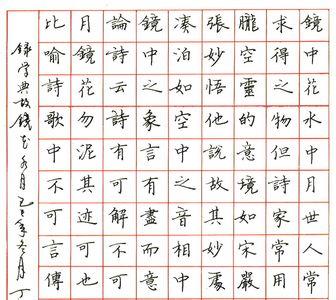 鏡中花水中月世人常
求得之物但詩家常用
朧空靈的意境如宋嚴
張妙悟他說故其妙處
湊泊如空中之音相中
鏡中之象言有盡而意
論詩云詩有可解不可
月鏡花勿泥其迹可也
比喻詩歌中不可言傳
錄字典故鏡花水月己丑年冬月丁